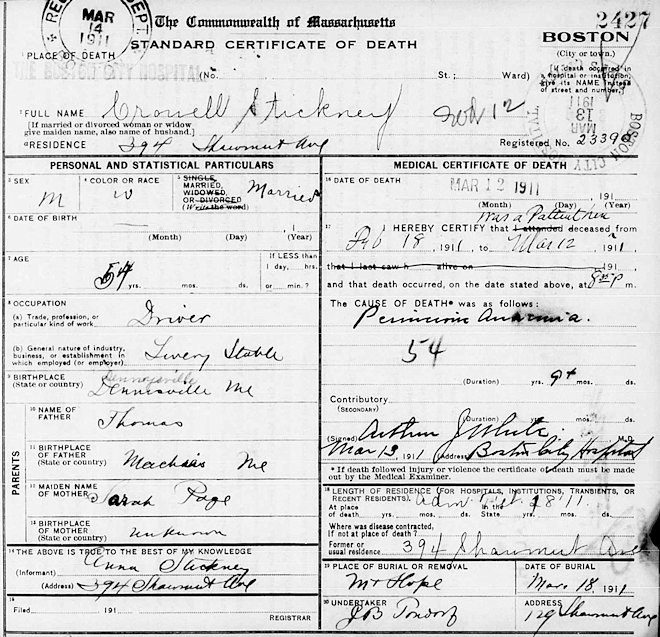 MAR
14
1911
The Commonwealth of Massachusetts
STANDARD CERTIFICATE OF DEATH
2427
BOSTON
(City or town.)
1 PLACE OF DEATH
THE BOSTON CITY HOSPITAL
(No. St.; Ward)
[If death occurred in a hospital or institution, give its NAME instead of street and number.]
2 FULL NAME Crowell Stickney Wd 12
[If married or divorced woman or widow give maiden name, also name of husband.]
RESIDENCE 394 Shawmut Ave
Registered No. 2339
MAR
13
1911
BOSTON CITY
PERSONAL AND STATISTICAL PARTICULARS
3 SEX M
4 COLOR OR RACE W
5 SINGLE, MARRIED, WIDOWED, OR DIVORCED (Write the word) Married
6 DATE OF BIRTH
(Month) (Day) (Year)
7 AGE 54 yrs. mos. ds.
If LESS than 1 day, hrs. or min.?
8 OCCUPATION
(a) Trade, profession, or particular kind of work Driver
(b) General nature of industry, business, or establishment in which employed (or employer) Livery Stable
9 BIRTHPLACE (State or country) Dennysville
Dennisville Me
PARENTS
10 NAME OF FATHER Thomas
11 BIRTHPLACE OF FATHER (State or country) Machias Me
12 MAIDEN NAME OF MOTHER Sarah Page
13 BIRTHPLACE OF MOTHER (State or country) Unknown
14 THE ABOVE IS TRUE TO THE BEST OF MY KNOWLEDGE
(Informant) Anna Stickney
(Address) 394 Shawmut Ave
15
Filed 191
REGISTRAR
MEDICAL CERTIFICATE OF DEATH
16 DATE OF DEATH
MAR 12 1911 , 191
(Month) (Day) (Year)
was a Patient here
17 I HEREBY CERTIFY that I attended deceased from
Feb 18, 1911, to Mar 12, 1911
that I last saw h alive on 191
and that death occurred, on the date stated above, at 8 P m.
The CAUSE OF DEATH* was as follows:
Pernicious Anaemia.
54
(Duration) yrs. 9+ mos. ds.
Contributory
(SECONDARY)
(Duration) yrs. mos. ds.
(Signed) Arthur J White M.D.
Mar 13, 1911 (Address) Boston City Hospital
* If death followed injury or violence the certificate of death must be made out by the Medical Examiner.
18 LENGTH OF RESIDENCE (FOR HOSPITALS, INSTITUTIONS, TRANSIENTS, OR RECENT RESIDENTS). Adm. Feb. 11
At place of death yrs. mos. ds. In the State yrs. mos. ds.
Where was disease contracted, If not at place of death?
Former or usual residence 394 Shawmut Ave
19 PLACE OF BURIAL OR REMOVAL
Mt Hope
DATE OF BURIAL
Mar. 18, 1911
20 UNDERTAKER
J B Tondorf
ADDRESS
129 Shawmut Ave